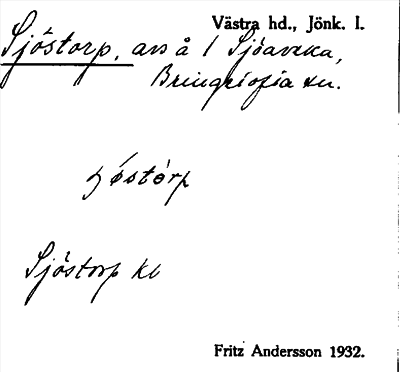 Västra hd., Jönk. l.
Sjöstorp, avs å 1 Sjöaveka,
Bringetofta sn.
Sjöstorp kl
Fritz Andersson 1932.